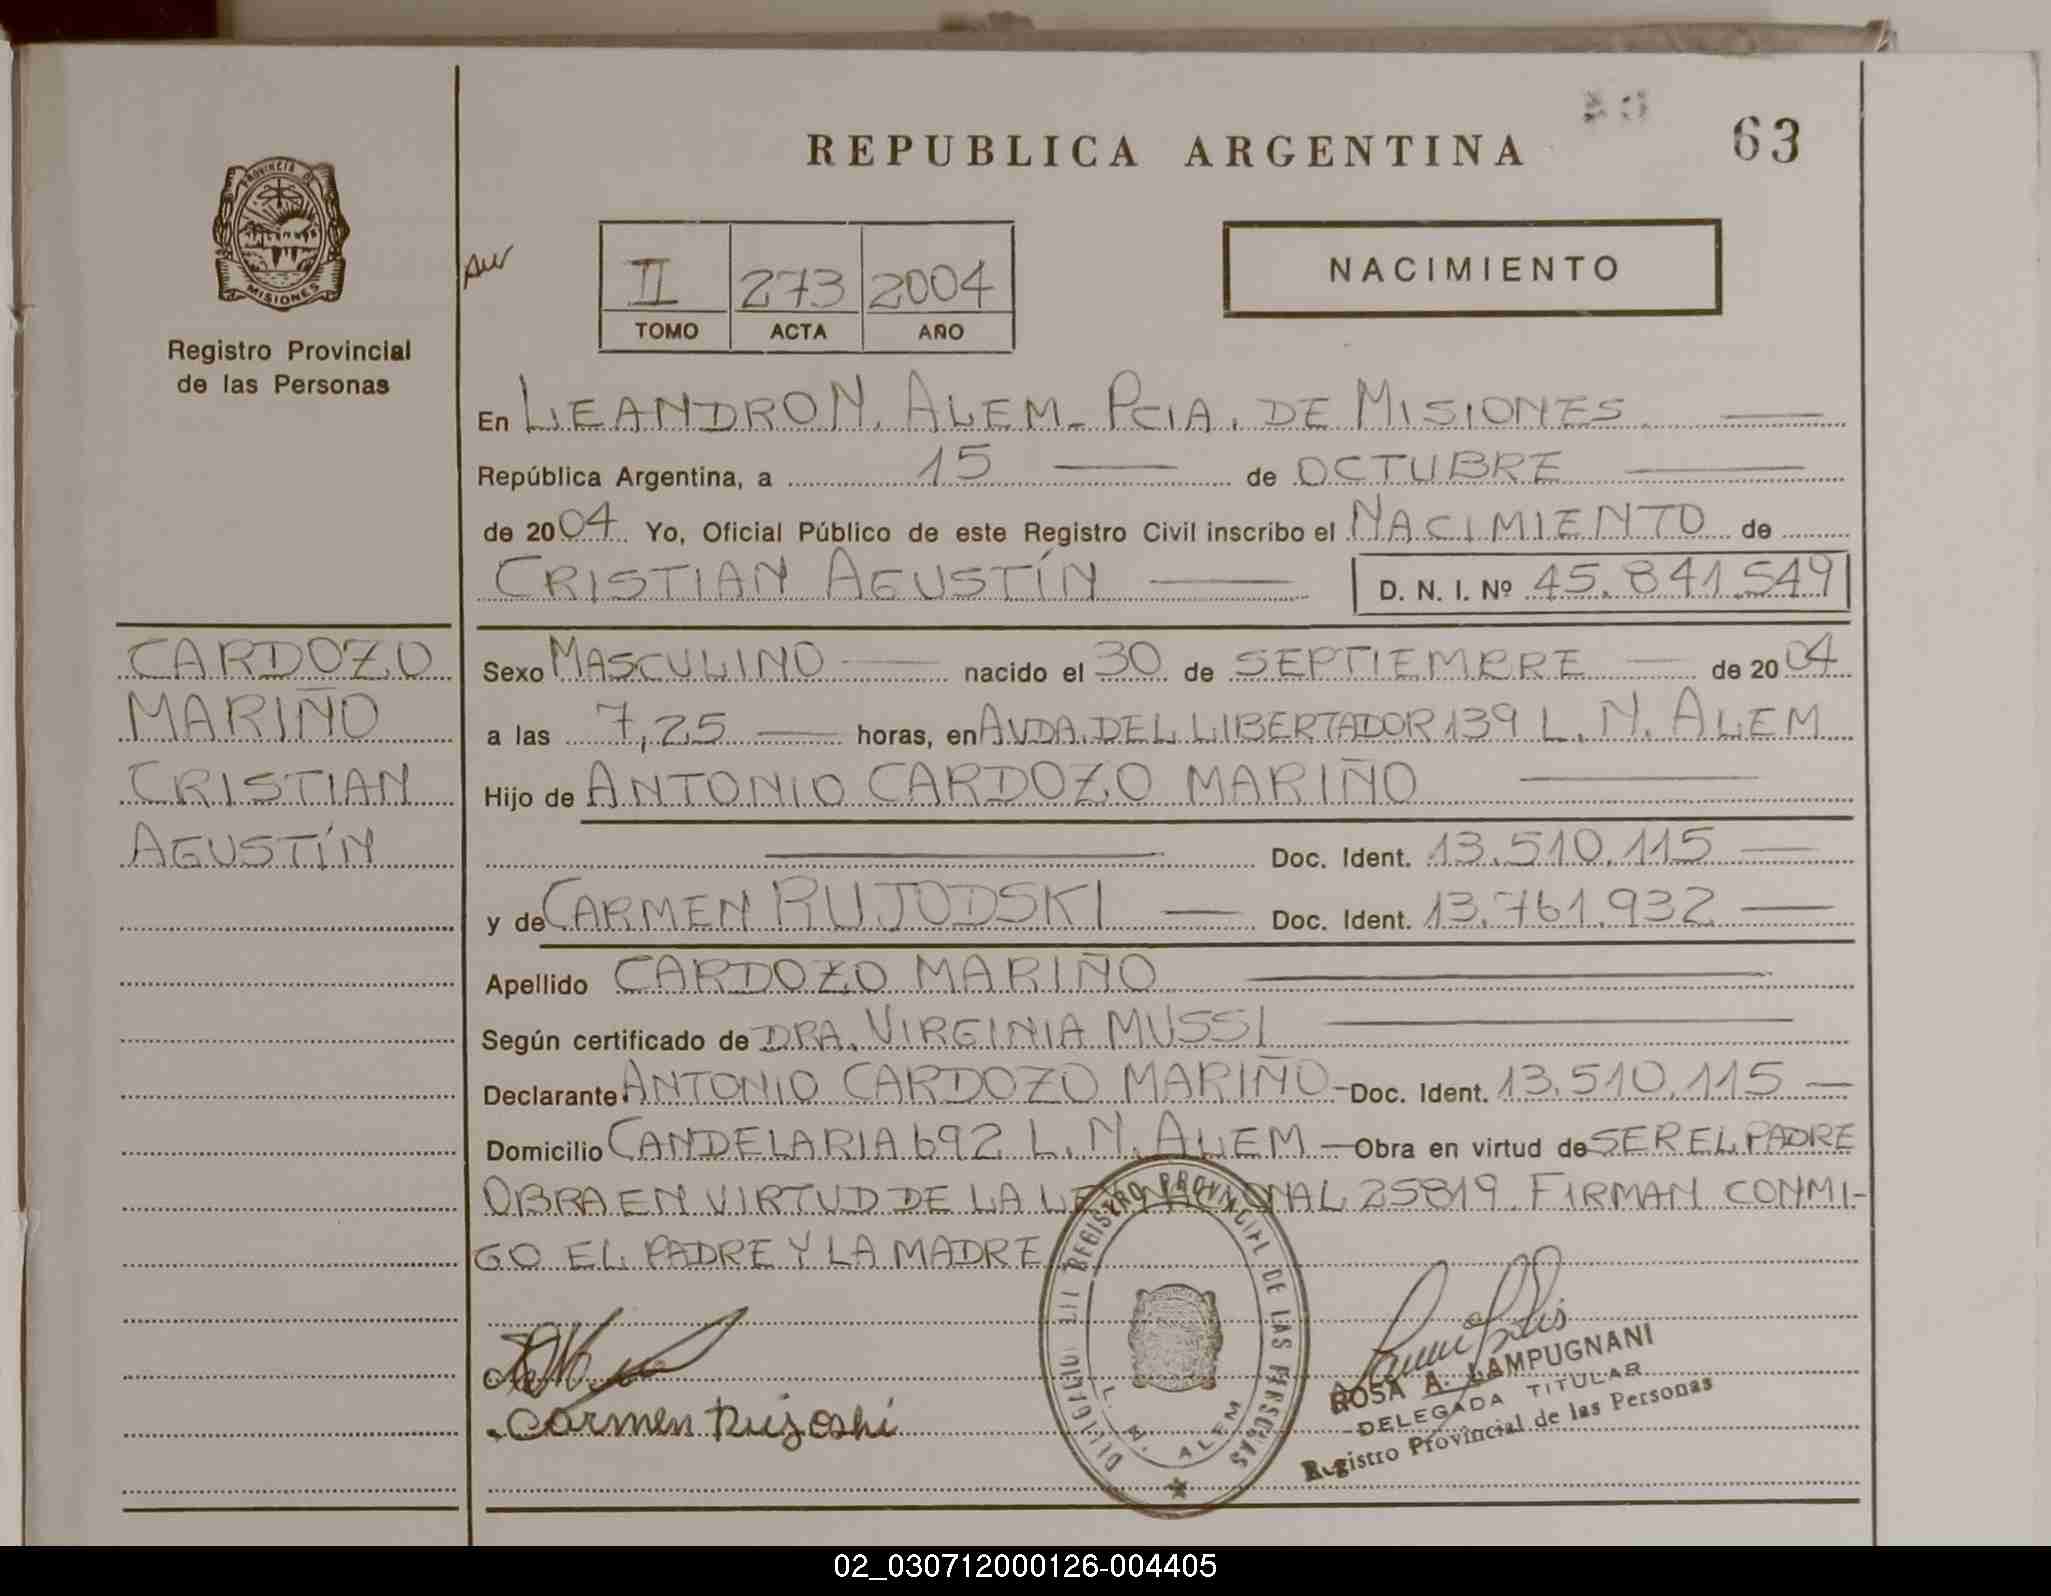 REPUBLICA ARGENTINA
63
PROVINCIA DE
MISIONES
Registro Provincial
de las Personas
II 273 2004
TOMO ACTA AÑO
NACIMIENTO
En LEANDRO N. ALEM - PCIA. DE MISIONES
República Argentina, a 15 de OCTUBRE
de 2004 Yo, Oficial Público de este Registro Civil inscribo el NACIMIENTO de
CRISTIAN AGUSTÍN D. N. I. Nº 45.841.549
CARDOZO
MARIÑO
CRISTIAN
AGUSTÍN
Sexo MASCULINO nacido el 30 de SEPTIEMBRE de 2004
a las 7,25 horas, en AVDA. DEL LIBERTADOR 139 L. N. ALEM
Hijo de ANTONIO CARDOZO MARIÑO
Doc. Ident. 13.510.115
y de CARMEN RUJODSKI Doc. Ident. 13.761.932
Apellido CARDOZO MARIÑO
Según certificado de DRA. VIRGINIA MUSSI
Declarante ANTONIO CARDOZO MARIÑO - Doc. Ident. 13.510.115
Domicilio CANDELARIA 692 L. N. ALEM - Obra en virtud de SER EL PADRE
OBRA EN VIRTUD DE LA LEY NACIONAL 25819. FIRMAN CONMI-
GO EL PADRE Y LA MADRE
Carmen Rujoski
REGISTRO PROVINCIAL DE LAS PERSONAS
L. N. ALEM
ROSA A. LAMPUGNANI
DELEGADA TITULAR
Registro Provincial de las Personas
02_030712000126-004405